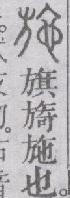 旖旗旖施也。